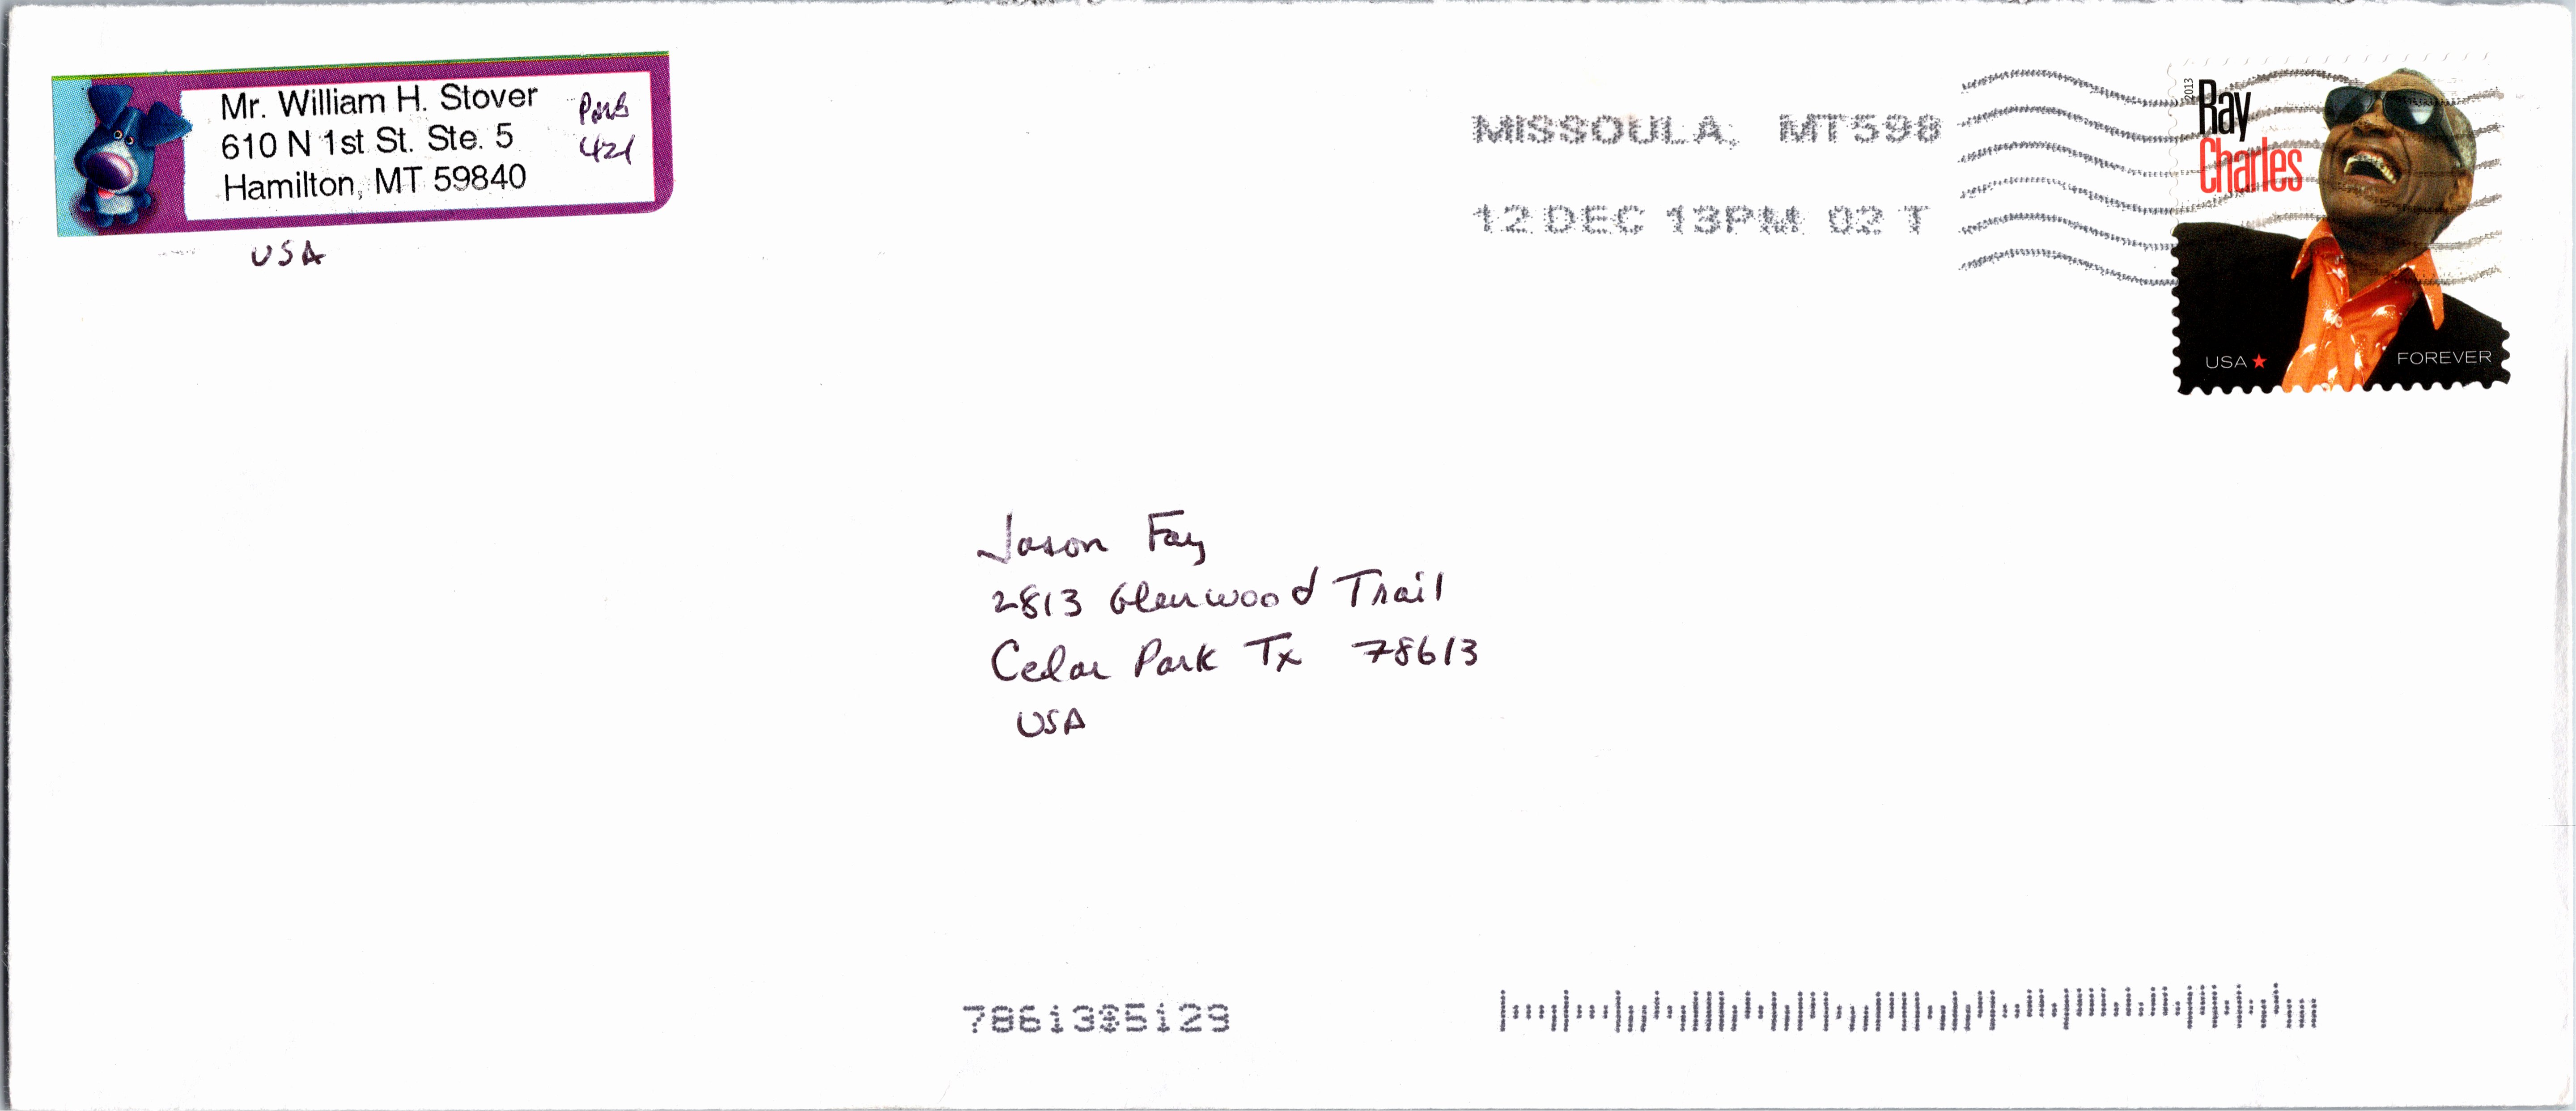 Mr. William H. Stover
610 N 1st St. Ste. 5
Hamilton, MT 59840
PMB
421
USA
MISSOULA, MT 598
12 DEC 13PM 02 T
2013
Ray
Charles
USA
FOREVER
Jason Fay
2813 Glenwood Trail
Cedar Park Tx 78613
USA
78613$5129